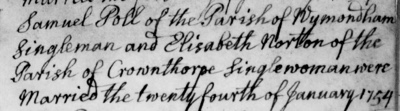 Samuel Poll of the Parish of Wymondham
Singleman and Elisabeth Norton of the
Parish of Crownthorpe Singlewoman were
Married the twenty fourth of January 1754